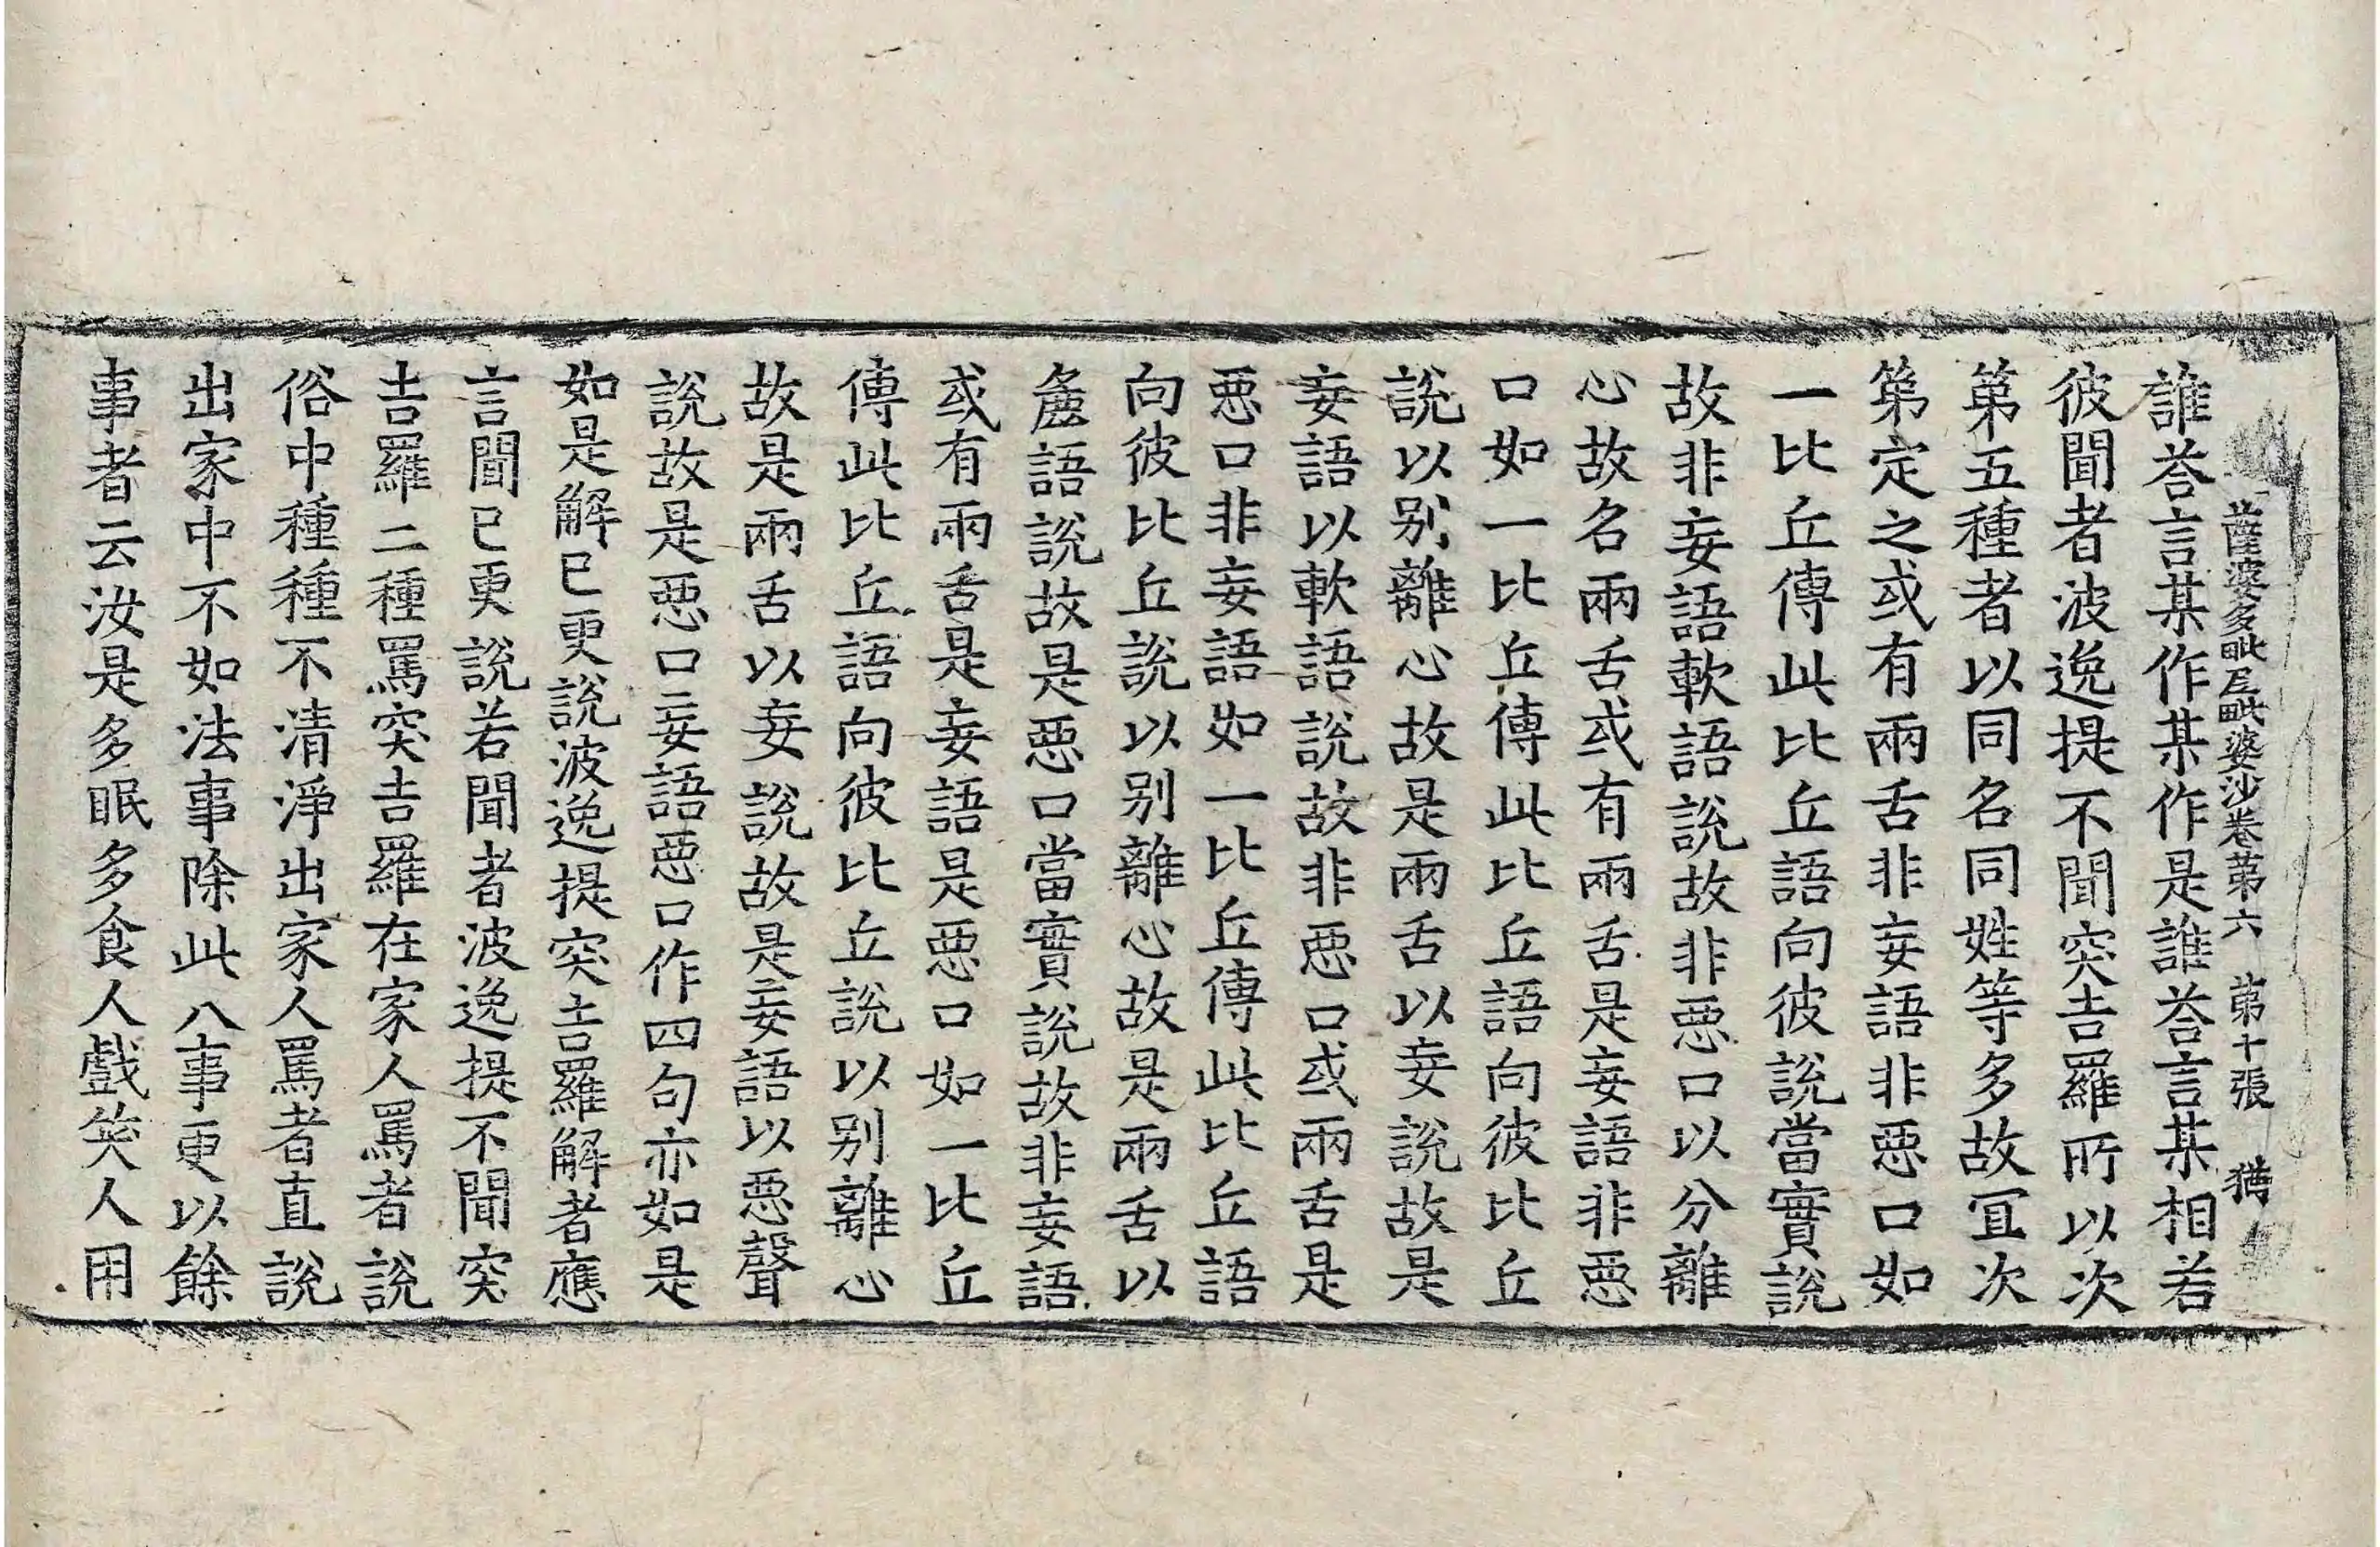 薩婆多毗尼毗婆沙卷第六　第十張
誰荅言某作某作是誰荅言某相若
彼聞者波逸提不聞突吉羅所以次
第五種者以同名同姓等多故冝次
第定之或有兩舌非妄語非惡口如
一比丘傳此比丘語向彼說當實說
故非妄語軟語說故非惡口以分離
心故名兩舌或有兩舌是妄語非惡
口如一比丘傳此比丘語向彼比丘
說以別離心故是兩舌以妄說故是
妄語以軟語說故非惡口或兩舌是
惡口非妄語如一比丘傳此比丘語
向彼比丘說以別離心故是兩舌以
麁語說故是惡口當實說故非妄語
或有兩舌是妄語是惡口如一比丘
傳此比丘語向彼比丘說以別離心
故是兩舌以妄說故是妄語以惡聲
說故是惡口妄語惡口作四句亦如是
如是解已更說波逸提突吉羅解者應
言聞已更說若聞者波逸提不聞突
吉羅二種罵突吉羅在家人罵者說
俗中種種不清淨出家人罵者直說
出家中不如法事除此八事更以餘
事者云汝是多眠多食人戲笑人用